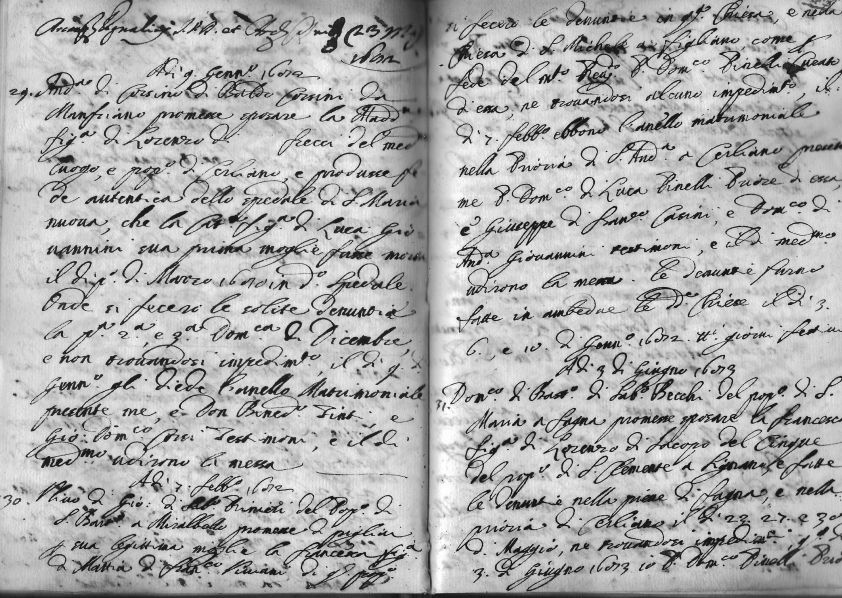 Adi 9 Genn.o 1672
29. And.a di Corsino di Baldo Corsini da
promesse sposare la Madd.a
fig.a di Lorenzo di Frecci del med.o
luogo, e pop.o di Cerliano, e produce fe
de autentica dello spedale di S. Maria
nuova, che la Cat.a fig.a di Luca Gio
vannini sua prima moglie fusse morta
il di p.o di Marzo 1670 in d.o spedale.
Onde si fecero le solite denunzie
la p.a 2.a, e 3.a Dom.ca di Dicembre,
e non trovandosi impedim.to, il di 9 di
Genn.o gli diede l'anello Matrimoniale
presente me, e Don Bened.o Tinti, e
Gio: Dom.co Corsi Testimoni, e il di
med.mo udirono la messa
Adi 7 Febb.o 1672
30. di Gio: di del Pop.o di
S. a Mirabello promesse di pigliar
p sua legittima moglie la Francesca fig.a
di Mattia di Fran.co di
si fecero le denunzie in q.a Chiesa, e nella
Chiesa di S. Michele a come
fede del m.to Rev.o P. Dom.co Pinelli Curato
d'essa, ne trovandosi alcuno impedim.to, il
di 7 febb.o ebbono l'anello matrimoniale
nella Prioria di S. And.a a Cerliano presente
me P. Dom.co di Luca Pinelli Priore di essa,
e Giuseppe di Fran.co Casini, e Dom.co di
And.a Giovannini testimoni, e il di med.mo
udirono la messa. le denunzie furno
fatte in ambedue le d.e Chiese il di 3.
6., e 10 di Genn.o 1672 tt.i giorni festivi
Adi 3 di Giugno 1673
31. Dom.co di Bast.o di Sab.o Becchi del pop.o di S.
Maria a Fagna promesse sposare la Francesca
fig.a di Lorenzo di Jacopo del Cinque
del pop.o di S. Clemente a Signano e fatte
le denunzie nella pieve di Fagna, e nella
prioria di Cerliano il di 22. 27. e 30
di Maggio, ne trovandosi impedim.o q.o di
3. di Giugno 1673 io P. Dom.co Pinelli Prio